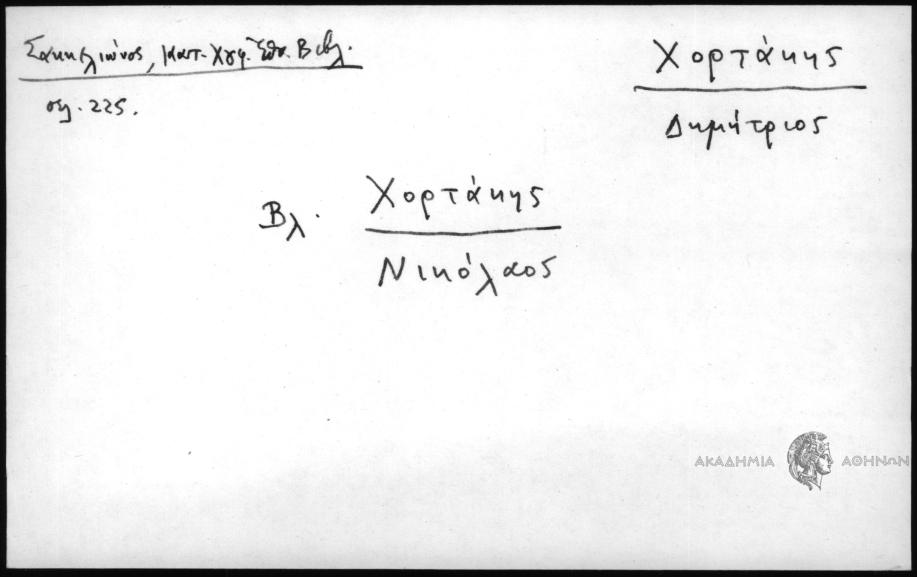 Σακκελιώνος, Κατ. Χφφ. Εθν. Βιβλ.
σελ. 225.
Χορτάκης
Δημήτριος
Βλ. Χορτάκης
Νικόλαος
ΑΚΑΔΗΜΙΑ ΑΘΗΝΩΝ